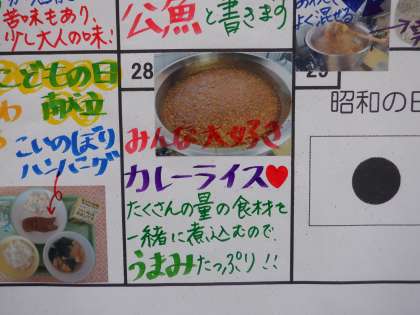 苦味もあり、
少し大人の味!
公魚
と書きます
よく混ぜる
こどもの日
献立
こいのぼり
ハンバーグ
28
みんな大好き
カレーライス♥
たくさんの量の食材を
一緒に煮込むので、
うまみたっぷり!!
29
昭和の日